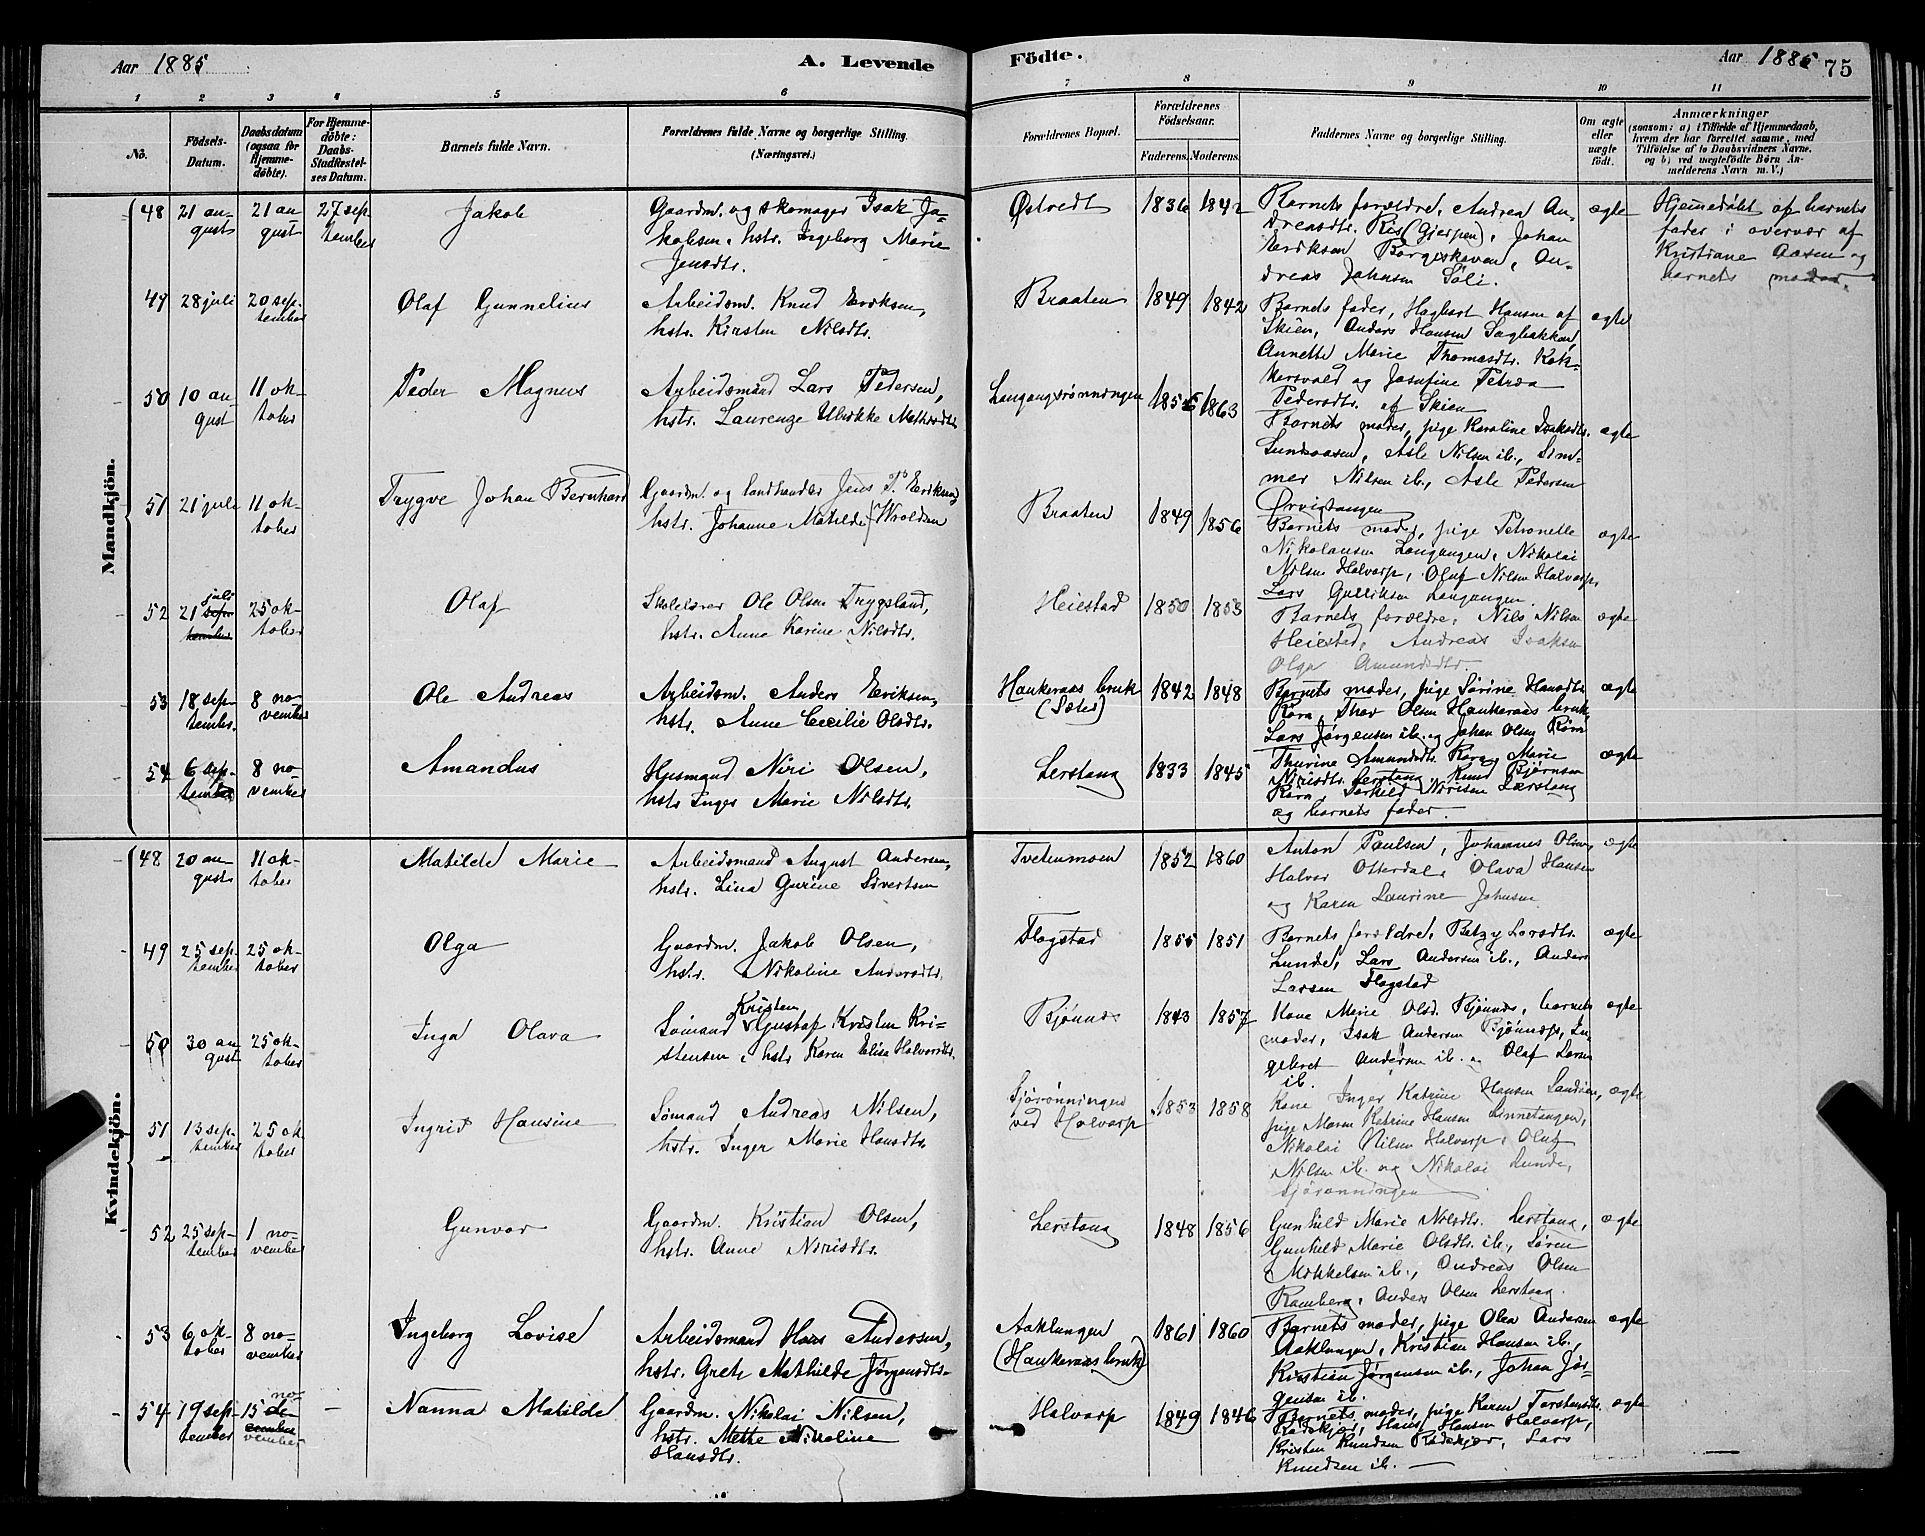 Aar 1885
A. Levende
Födte.
Aar 1885
75
1 2 3 4 5 6 7 8 9 10 11
No.
Födsels-
Datum.
Daabsdatum
(ogsaa for
Hjemme-
döbte).
For Hjemme-
döbte:
Daabs-
Stadfæstel-
ses Datum.
Barnets fulde Navn.
Forældrenes fulde Navne og borgerlige Stilling.
(Næringsvei.)
Forældrenes Bopæl.
Forældrenes
Födselsaar.
Faderens.
Moderens.
Faddernes Navne og borgerlige Stilling.
Om ægte
eller
uægte
födt.
Anmærkninger
(saasom: a) i Tilfælde af Hjemmedaab,
hvem der har forrettet samme, med
Tilföielse af to Daabsvidners Navne,
og b) ved uægtefödte Börn An-
melderens Navn m. V.)
Mandkjön.
48 21 au- 21 au 27 sep
gust gust tember
Jakob
Gaardm. og skomager Isak Ja-
kobsen, hstr. Ingeborg Marie
Jensdtr.
Østvedt 1836 1842
Barnets forældre, Andrea An-
dreasdtr. Ris (Gjerpen), Johan
Eriksen Borgeskoven, An-
dreas Johnsen Søli.
ægte
Hjemmedøbt af barnets
fader i overvær af
Kristiane Aasen og
barnets moder.
49 28 juli 20 sep-
tember
Olaf Gunnelius
Arbeidsm. Knud Eriksen,
hstr. Kirsten Nilsdtr.
Braaten 1849 1842
Barnets fader, Hagbart Hansen af
Skien, Anders Hansen Sagbakken,
Annette Marie Thomasdtr. Kok-
kersvold og Josefine Petrea
Pedersdtr. af Skien
ægte
50 10 au- 11 ok-
gust tober
Peder Magnus
Arbeidsmand Lars Pedersen,
hstr. Laurenze Ulrikke Mathisdtr.
Langangsrønningen 1856 1863
Barnets moder, pige Karoline Isaksdtr.
Lunkaasen, Asle Nilsen ib., Sim-
mer Nilsen ib., Asle Pedersen
Ørvigtangen
ægte
51 21 juli 11 ok-
tober
Trygve Johan Bernhard
Gaardm. og landhandler Jens P. Eriksen
hstr. Johanne Matilde Wroldsen
Braaten 1849 1856
Barnets moder, pige Petronelle
Nikolausen Langangen, Nikolai
Nilsen Halvarp, Oluf Nilsen Halvarp,
Lars Gulliksen Langangen
ægte
juli
52 21 sep- 25 ok-
tember tober
Olaf
Skolelærer Ole Olsen Trygsland,
hstr. Anne Karine Nilsdtr.
Heiestad 1850 1853
Barnets forældre, Nils Nilsen
Heiestad, Andreas Isaksen
Olga Amundsdtr.
ægte
53 18 sep- 8 no-
tember. vember
Ole Andreas
Arbeidsm. Anders Eriksen,
hstr. Anne Cecilie Olsdtr.
Haukeraas bruk
(Sæter) 1842 1848
Barnets moder, pige Sørine Hansdtr.
Røra, Thor Olsen Haukeraas bruk,
Lars Jørgensen ib. og Johan Olsen Røra
ægte
54 6 sep- 8 no-
tember vember
Amandus
Husmand Niri Olsen,
hstr. Inger Marie Nilsdtr.
Lerstang 1833 1845
Thurine Amundsdtr. Røra, Marie
Nirisdtr. Lerstang, Knud Bjørnsen
Røra, Torkild Nirisen Lærstang
og barnets fader.
ægte
Kvindekjön.
48 20 au- 11 ok-
gust tober
Matilde Marie
Arbeidsmand August Andersen,
hstr. Lina Gurine Sivertsen
Tvetenmoen 1852 1860
Anton Paulsen, Johannes Olsen,
Halvor Otterdal, Olava Hansen
og Karen Laurine Johnsen
ægte
49 25 sep- 25 ok-
tember tober
Olga
Gaardm. Jakob Olsen,
hstr. Nikoline Andersdtr.
Flogstad 1855 1851
Barnets forældre, Betzy Larsdtr.
Lunde, Lars Andersen ib., Anders
Larsen Flogstad
ægte
50 30 au 25 ok-
gust tober
Inga Olava
Kristen
Sømand Gustaf Kristen Kri-
stensen, hstr. Karen Elisa Halvorsdtr.
Bjønnes 1843 1857
Kone Marie Olsd. Bjønnes, barnets
moder, Isak Andersen Bjønnes, In-
gebret Andersen ib. og Olaf Larsen
ib.
ægte
51 13 sep- 25 ok
tember tober
Ingrid Hansine
Sømand Andreas Nilsen,
hstr. Inger Marie Hansdtr.
Sjørønningen
ved Halvarp 1853 1858
Kone Inger Katrine Hansen Sandøen,
pige Maren Katrine Hansen Linnetangen,
Nikolai Nilsen Halvarp, Oluf
Nilsen ib. og Nikolai Lunde,
Sjørønningen
ægte
52 25 sep- 1 no-
tember vember
Gunvor
Gaardm. Kristian Olsen,
hstr. Anne Nirisdtr.
Lerstang 1848 1856
Gunhild Marie Nilsdtr. Lerstang,
Gunhild Marie Olsdtr. ib., Søren
Mikkelsen ib., Andreas Olsen
Ramberg, Anders Olsen Lerstang.
ægte
53 6 ok- 8 no-
tober vember
Ingeborg Lovise
Arbeidsmand Hans Andersen,
hstr. Grete Mathilde Jørgensdtr.
Aaklungen
(Haukeraas bruk) 1861 1860
Barnets moder, pige Olea Andersen
Aaklungen, Kristian Hansen ib.,
Kristian Jørgensen ib., Johan Jør-
gensen ib.
ægte
no-
54 19 sep- 15 de-
tember cember
vember
Nanna Matilde
Gaardm. Nikolai Nilsen,
hstr. Mette Nikoline
Hansdtr.
Halvarp 1849 1846
Barnets moder, pige Karen Torstensdtr.
Rødskjør, Hans Hansen Halvarp,
Kristen Knudsen Rødskjør, Lars
Knudsen ib.
ægte